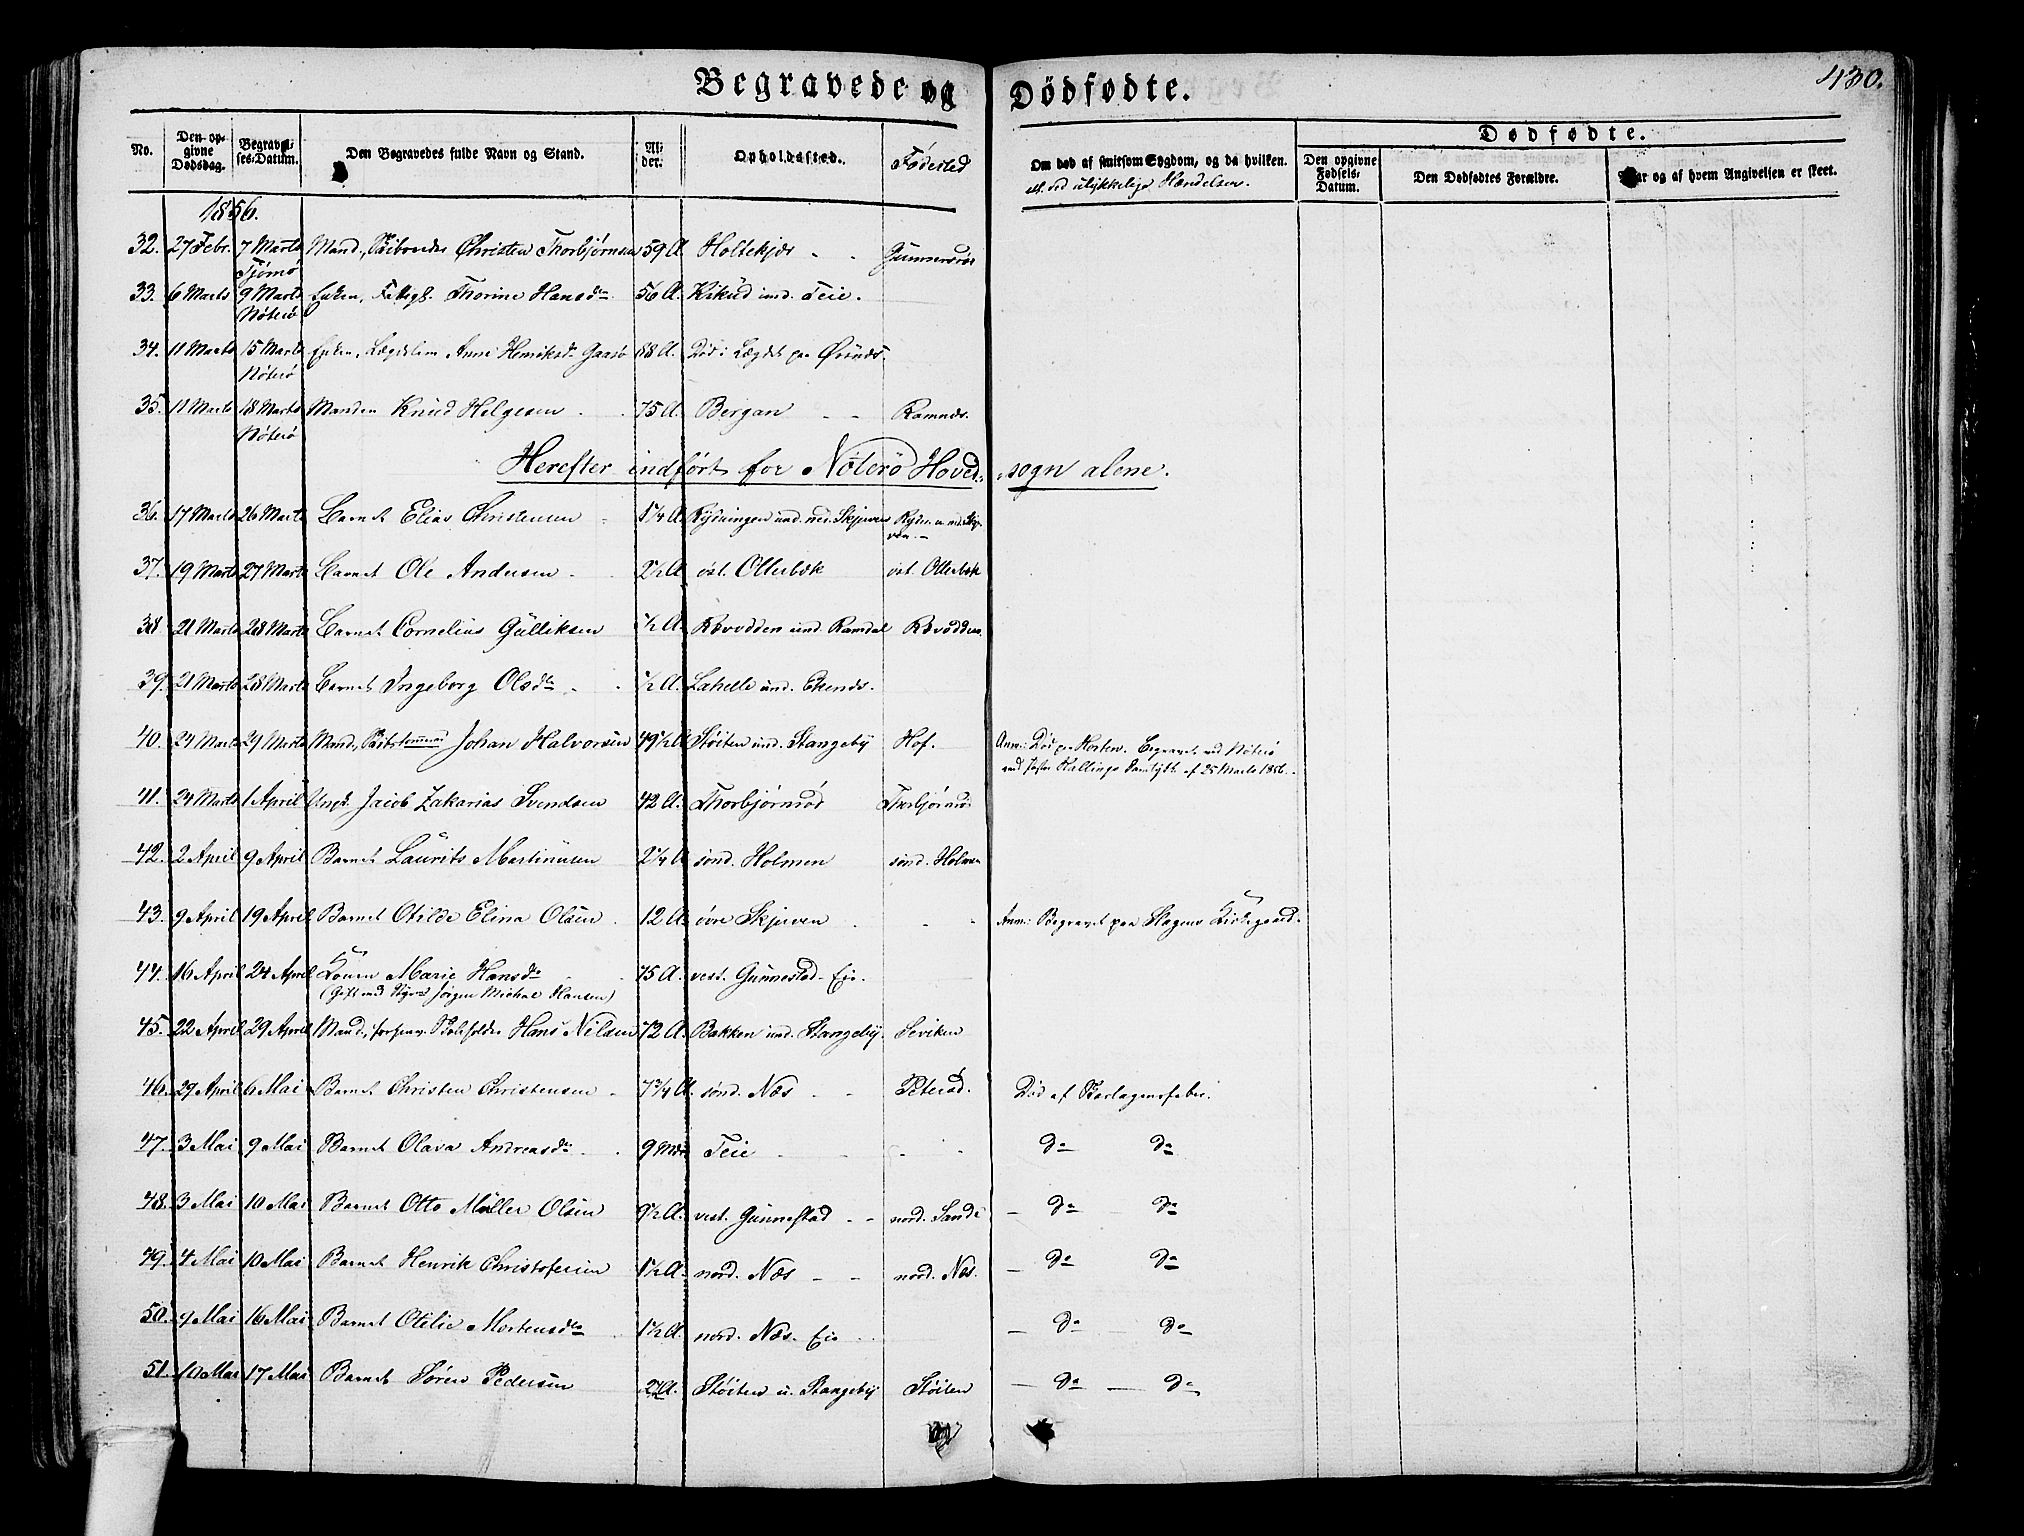 430.
Begravede og Dödfödte.
No. Den opgivne Dødsdag. Begravelses-Datum. Den Begravedes fulde Navn og Stand. Alder. Opholdssted. Fødested Om død af smitsom Sygdom, og da hvilken. el. ved ulykkelige Hændelser.
Dødfødte.
Den opgivne Fødsels-Datum. Den Dødfødtes Forældre. Naar og af hvem Angivelsen er skeet.
1856.
32. 27 Febr. 7 Marts Tjømø Mand, Christen Thorbjørnsen 59 A. Holtekjær
33. 6 Marts 9 Marts Nøterö Enken, Thorine Hansdtr 56 A. und. Teie.
34. 11 Marts 15 Marts Nøterö Enken, Lægdslem Anne Henriksdr Gaasø 88 A. Død i Lægdet paa
35. 11 Marts 18 Marts Nøterö Manden Knud Helgesen 75 A. Bergan - - Ramnæs.
Herefter indført for Nøterö Hoved-sogn alene.
36. 17 Marts 26 Marts Barnet Elias Christensen 1¼ A. Rydningen und. ned. Skjerven
37. 19 Marts 27 Marts Barnet Ole Andersen 2½ A. øst. Ollebæk øst. Ollebæk
38. 21 Marts 28 Marts Barnet Cornelius Gulliksen ½ A. Røvodden und. Ramdal Røvodden
39. 21 Marts 28 Marts Barnet Ingeborg Olsdtr ½ A. Lahelle und. Ekenæs.
40. 24 Marts 29 Marts Mand, Johan Halvorsen 49½ A. Støiten und. Stangeby Hof. Anm: Død paa Horten. Begravet ved Nøterö
af 25 Marts 1856.
41. 24 Marts 1 April Ungk. Jacob Zakarias Svendsen 42 A. Thorbjørnrød Thorbjørnrød
42. 2 April 9 April Barnet Laurits Martinusen 2¼ A. sønd. Holmen sønd. Holmen
43. 9 April 19 April Barnet Otilde Elina Olsen 12 A. øvre Skjerven - - Anm: Begravet paa Slagens Kirkegaard.
44. 16 April 24 April Konen Marie Hansdtr 75 A. vest. Gunnestad-Eie.
(Gift med Jørgen Michal Hansen)
45. 22 April 29 April Mand, Hans Nilsen 72 A. Bakken und. Stangeby. Seviken
46. 29 April 6 Mai Barnet Christen Christensen 7¾ A. sønd. Næs - - Død af Skarlagensfeber.
47. 3 Mai 9 Mai Barnet Olava Andreasdr 9 Mdr Teie - - do do
48. 3 Mai 10 Mai Barnet Otto Müller Olsen 9½ A. vest. Gunnestad - - nord. Sande - do - do
49. 4 Mai 10 Mai Barnet Henrik Christofersen 1½ A. nord. Næs - - nord. Næs. - do do
50. 9 Mai 16 Mai Barnet Otilie Mortensdtr 1½ A. nord. Næs-Eie - do - do
51. 10 Mai 17 Mai Barnet Søren Pedersen A. Støiten u. Stangeby Støiten - do - do